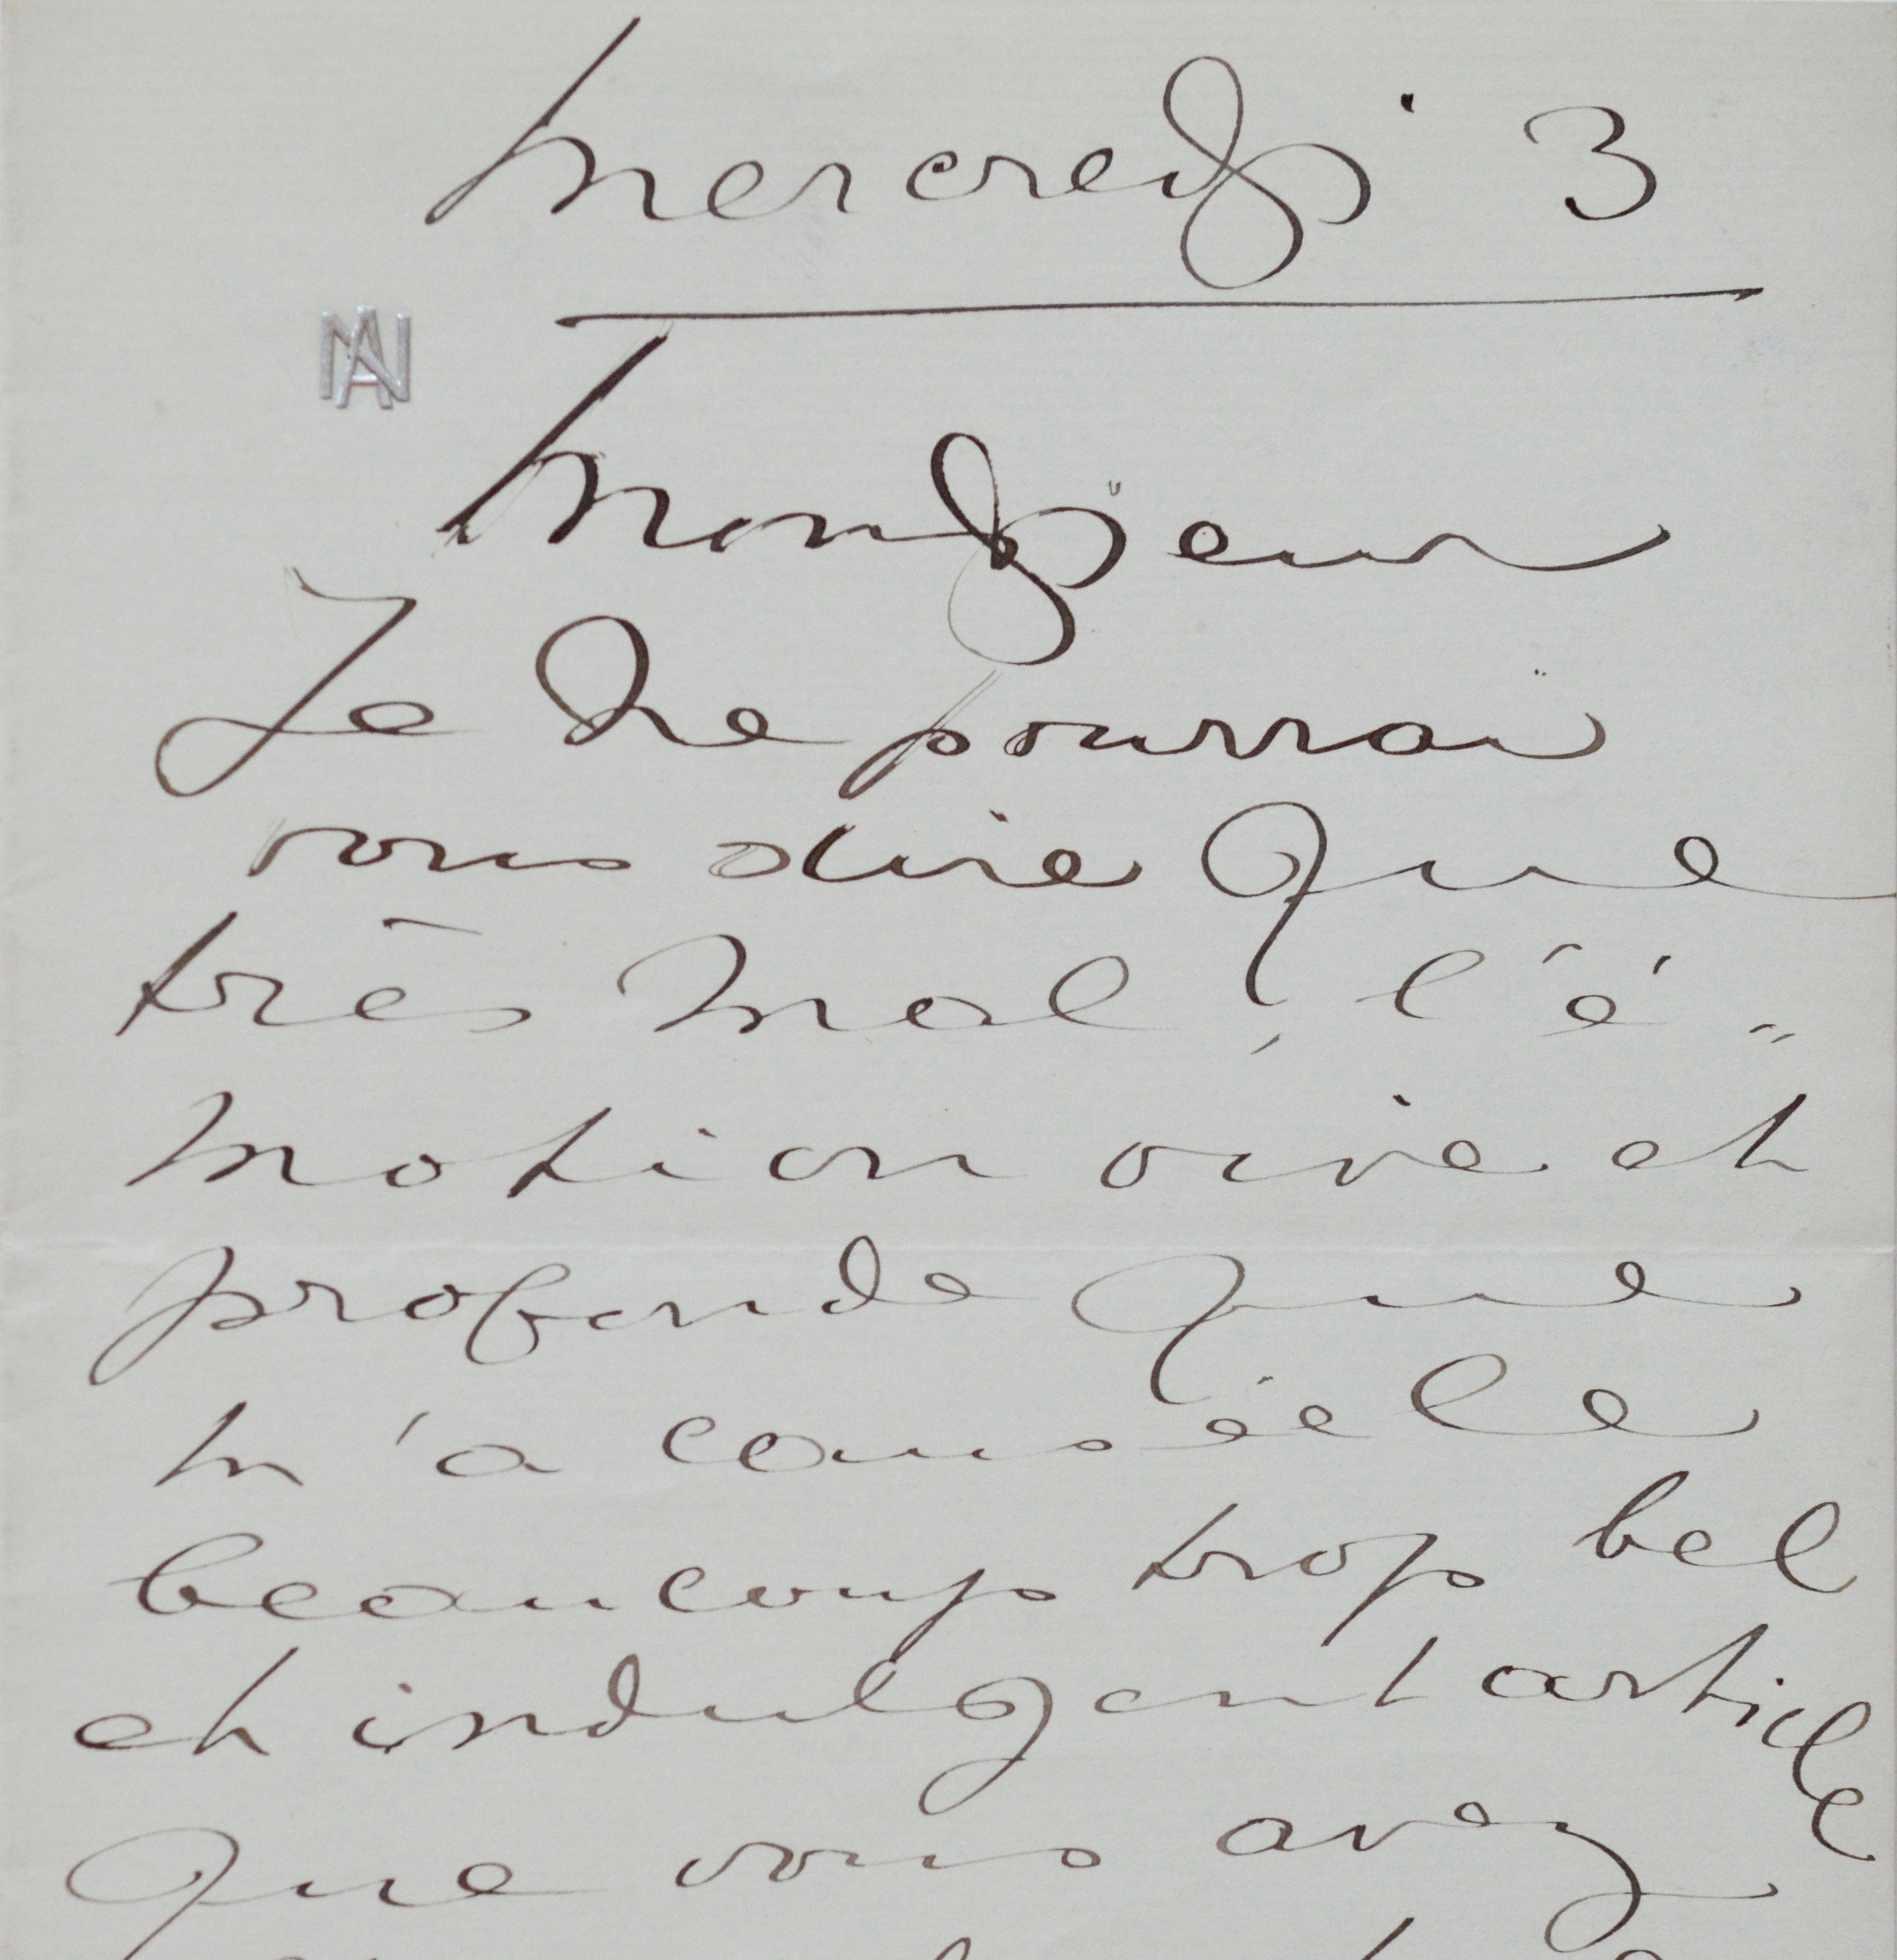 Mercredi 3
NA
Monsieur
Je ne pourrai
vous dire que
très mal, l'é-
motion vive et
profonde que
m'a causée le
beaucoup trop bel
et indulgent article
que vous avez